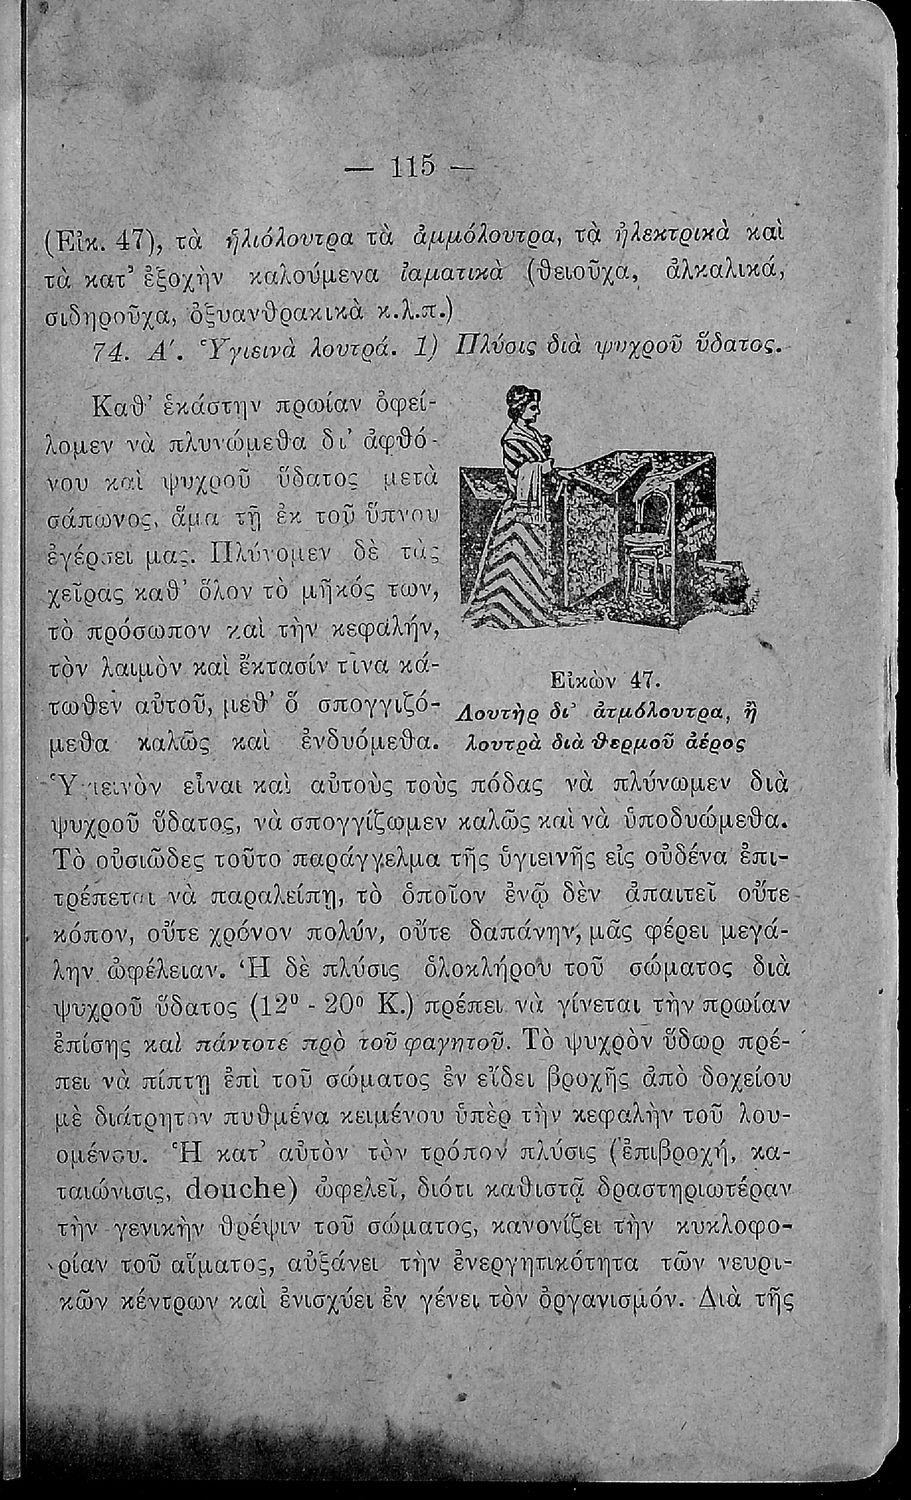 — 115 —
(Εἰκ. 47), τὰ ἡλιόλουτρα τὰ ἀμμόλουτρα, τὰ ἠλεκτρικὰ καὶ
τὰ κατ’ ἐξοχὴν καλούμενα ἰαματικὰ (θειοῦχα, ἀλκαλικά,
σιδηροῦχα, ὀξυανθρακικὰ κ.λ.π.)
74. Α΄. Ὑγιεινὰ λουτρά. 1) Πλύσις διὰ ψυχροῦ ὕδατος.
Καθ’ ἑκάστην πρωίαν ὀφεί-
λομεν νὰ πλυνώμεθα δι’ ἀφθό-
νου καὶ ψυχροῦ ὕδατος μετὰ
σάπωνος, ἅμα τῇ ἐκ τοῦ ὕπνου
ἐγέρσει μας. Πλύνομεν δὲ τὰς
χεῖρας καθ’ ὅλον τὸ μῆκός των,
τὸ πρόσωπον καὶ τὴν κεφαλήν,
τὸν λαιμὸν καὶ ἔκτασίν τινα κά-
τωθεν αὐτοῦ, μεθ’ ὅ σπογγιζό-
μεθα καλῶς καὶ ἐνδυόμεθα.
Εἰκὼν 47.
Λουτὴρ δι’ ἀτμόλουτρα, ἢ
λουτρὰ διὰ θερμοῦ ἀέρος
Ὑγιεινὸν εἶναι καὶ αὐτοὺς τοὺς πόδας νὰ πλύνωμεν διὰ
ψυχροῦ ὕδατος, νὰ σπογγίζωμεν καλῶς καὶ νὰ ὑποδυώμεθα.
Τὸ οὐσιῶδες τοῦτο παράγγελμα τῆς ὑγιεινῆς εἰς οὐδένα ἐπι-
τρέπεται νὰ παραλείπῃ, τὸ ὁποῖον ἐνῷ δὲν ἀπαιτεῖ οὔτε
κόπον, οὔτε χρόνον πολύν, οὔτε δαπάνην, μᾶς φέρει μεγά-
λην ὠφέλειαν. Ἡ δὲ πλύσις ὁλοκλήρου τοῦ σώματος διὰ
ψυχροῦ ὕδατος (12⁰ - 20⁰ Κ.) πρέπει νὰ γίνεται τὴν πρωίαν
ἐπίσης καὶ πάντοτε πρὸ τοῦ φαγητοῦ. Τὸ ψυχρὸν ὕδωρ πρέ-
πει νὰ πίπτῃ ἐπὶ τοῦ σώματος ἐν εἴδει βροχῆς ἀπὸ δοχείου
μὲ διάτρητον πυθμένα κειμένου ὑπὲρ τὴν κεφαλὴν τοῦ λου-
ομένου. Ἡ κατ’ αὐτὸν τὸν τρόπον πλύσις (ἐπιβροχή, κα-
ταιώνισις, douche) ὠφελεῖ, διότι καθιστᾷ δραστηριωτέραν
τὴν γενικὴν θρέψιν τοῦ σώματος, κανονίζει τὴν κυκλοφο-
ρίαν τοῦ αἵματος, αὐξάνει τὴν ἐνεργητικότητα τῶν νευρι-
κῶν κέντρων καὶ ἐνισχύει ἐν γένει τὸν ὀργανισμόν. Διὰ τῆς